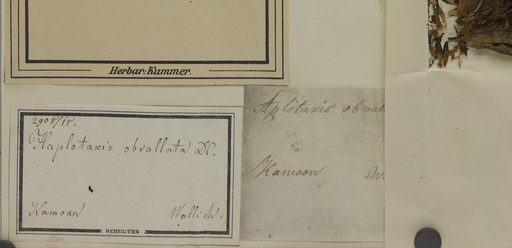 Herbar: Kummer.
2905/15.
Haplotaxis obvallata DC.
Kamoan
Wallich.
SCHULTES
Aplotaxis obval
Kamoon